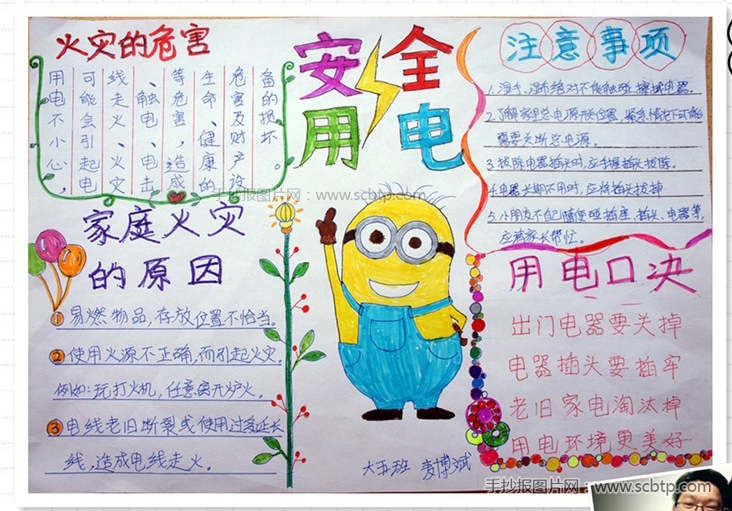 火灾的危害
用电不小心，
可能会引起电
线走火、火灾
、触电、电击
等危害，造成
生命、健康的
危害及财产设
备的损坏
安全
用电
注意事项
1.湿手、湿布绝对不能触碰、擦拭电器.
2.了解家里总电源开关位置,紧急情况下可能
需要关断总电源.
3.拔除电器插头时,应手握插头拔除.
4.电器长期不用时,应将插头拔掉
5.小朋友不自己随便碰插座、插头、电器等,
家长帮忙。
手抄报图片网：www.scbtp.com
家庭火灾
的原因
①易燃物品,存放位置不恰当。
②使用火源不正确,而引起火灾.
例如:玩打火机,任意离开炉火。
③电线老旧断裂或使用过多延长
线,造成电线走火。
用电口决
出门电器要关掉
电器插头要插牢
老旧家电淘汰掉
用电环境更美好
大五班 麦博斌
手抄报图片网：www.scbtp.com